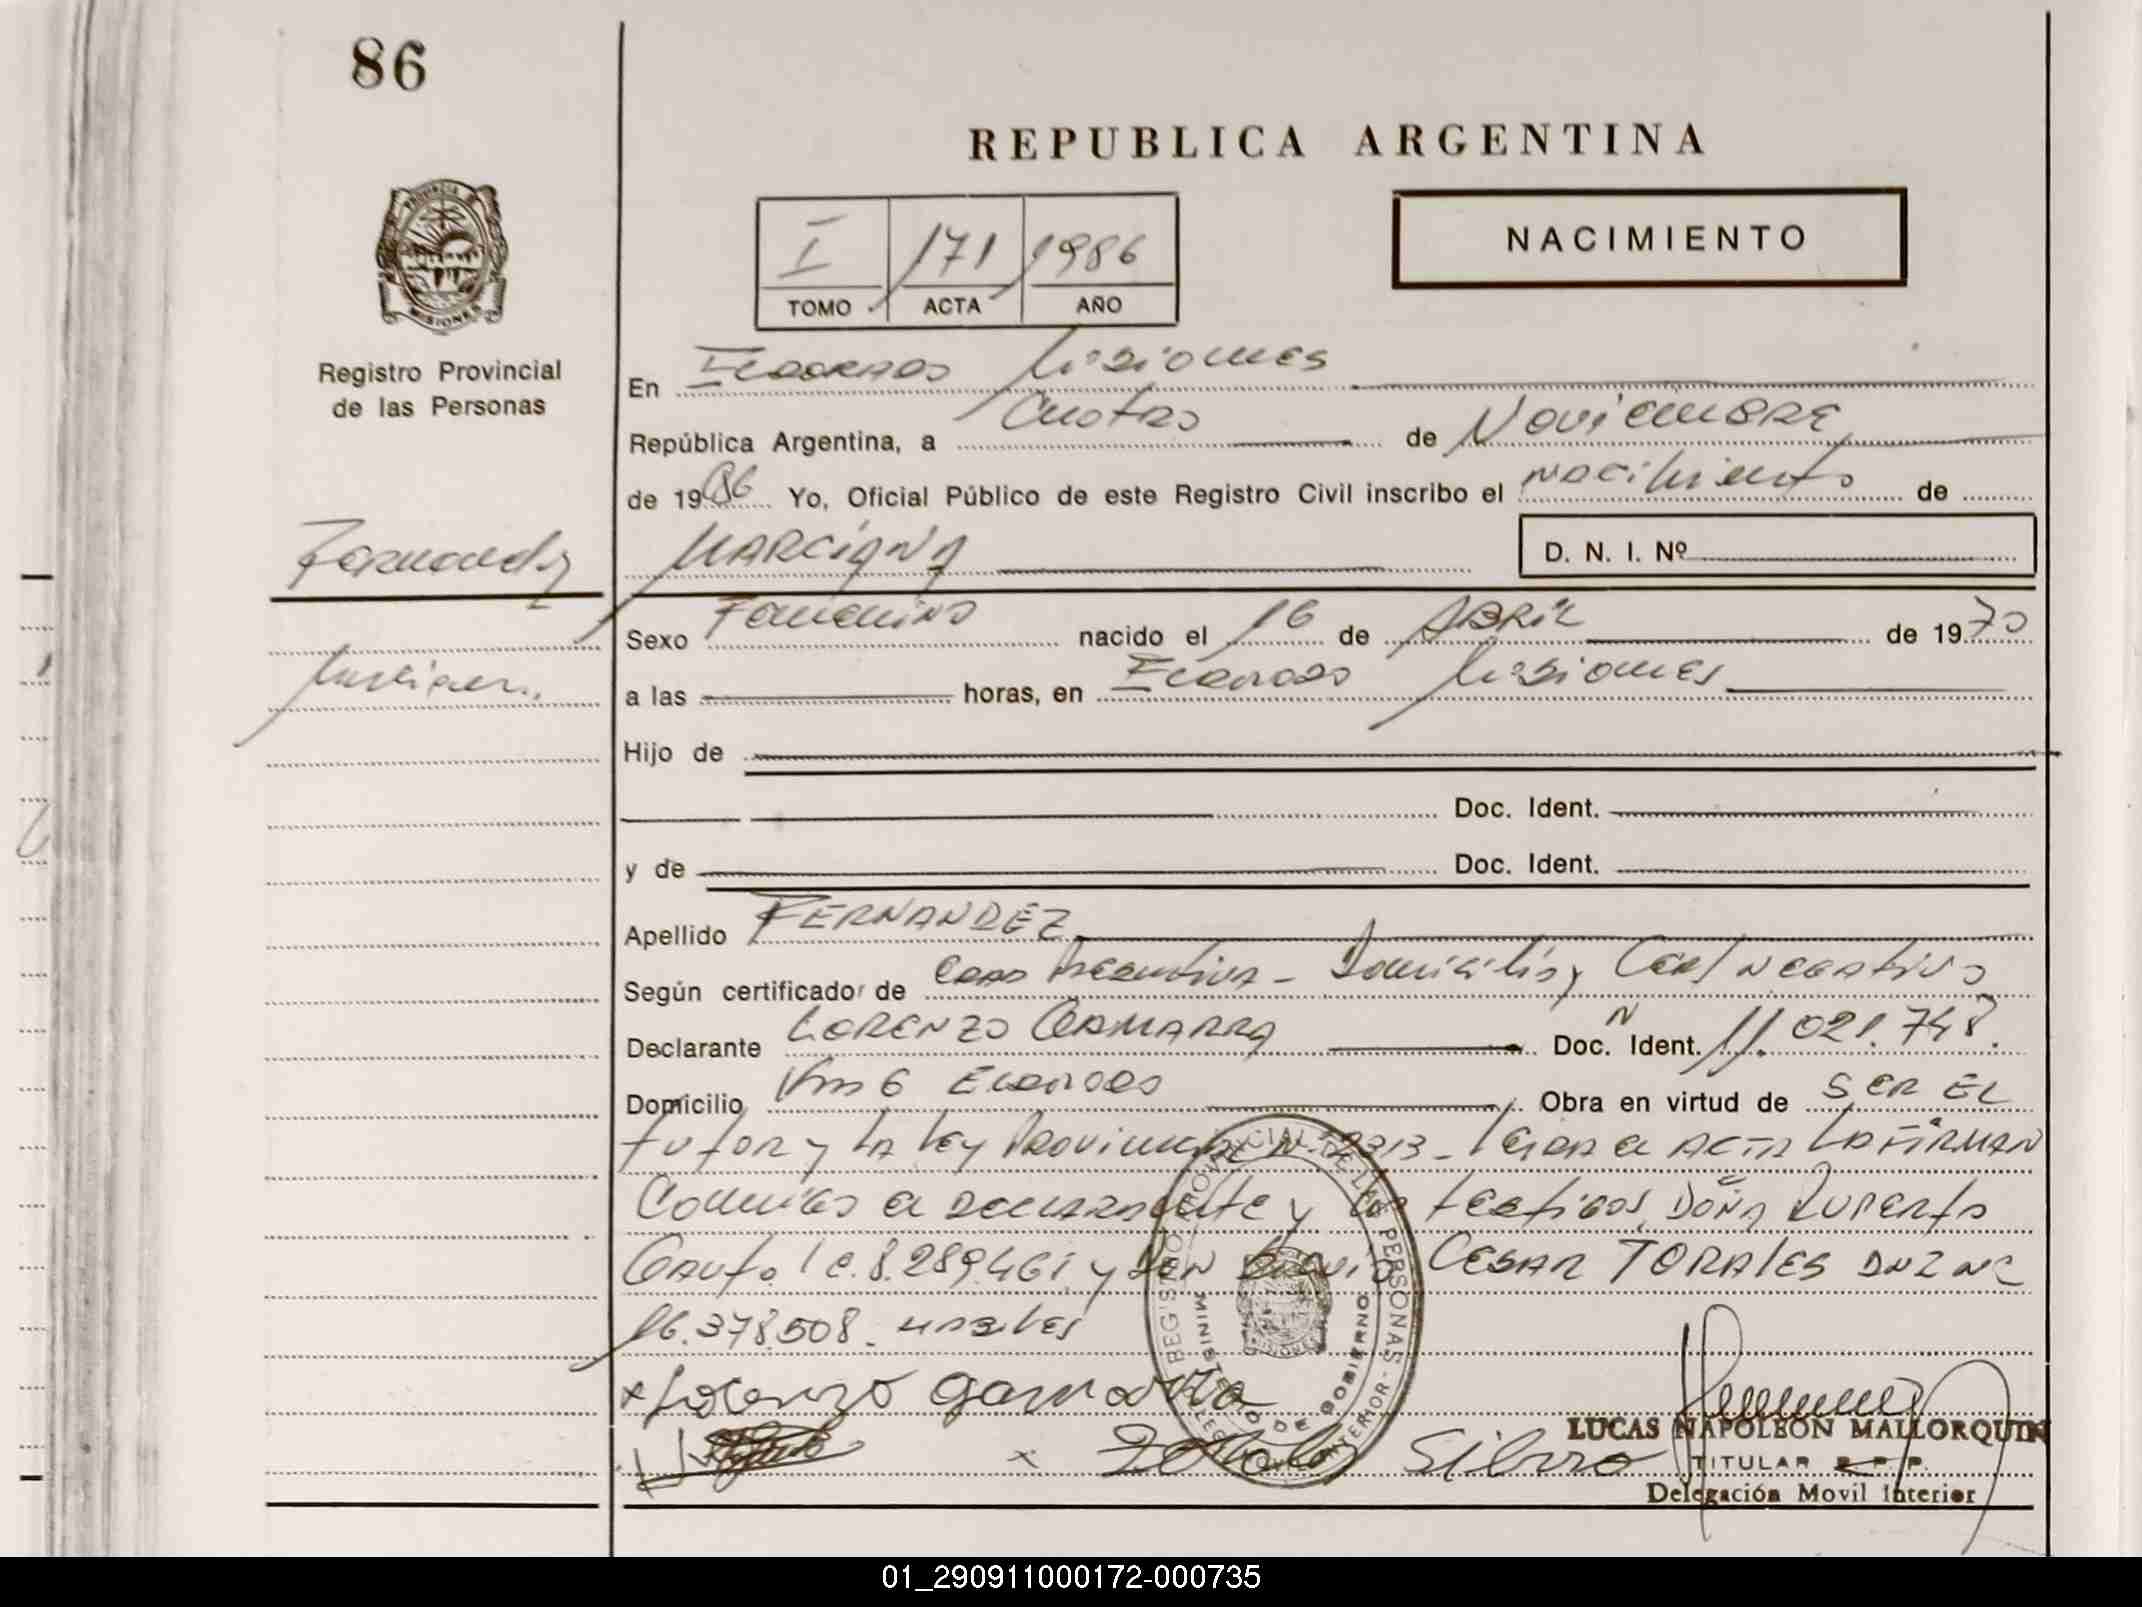 86
REPUBLICA ARGENTINA
I 171 1986
TOMO ACTA AÑO
NACIMIENTO
PROVINCIA DE MISIONES
Registro Provincial
de las Personas
En ELDORADO Misiones
República Argentina, a Cuatro de Noviembre
de 1986 Yo, Oficial Público de este Registro Civil inscribo el nacimiento de
Fernandez
MARCIANA
D. N. I. Nº
Sexo Femenino nacido el 16 de ABRIL de 1970
Marciana
a las horas, en Eldorado Misiones
Hijo de
Doc. Ident.
y de Doc. Ident.
Apellido FERNANDEZ
Según certificado de Domicilio y Negativo
Declarante LORENZO GAMARRA Doc. Ident. N 11.021.748.
Domicilio Km 6 Eldorado Obra en virtud de SER EL
tutor y la Ley Provincial Nº 2313 - Leida el ACTA LA FIRMAN
Conmigo el declarante y los testigos, DOÑA
8.289.461 y DON CESAR TORALES DNI Nº
16.378.508.
x Lorenzo gamarra
x
REGISTRO PROVINCIAL DE LAS PERSONAS
MINISTERIO DE GOBIERNO
LUCAS NAPOLEÓN MALLORQUIN
TITULAR R. P. P.
Delegación Movil Interior
01_290911000172-000735